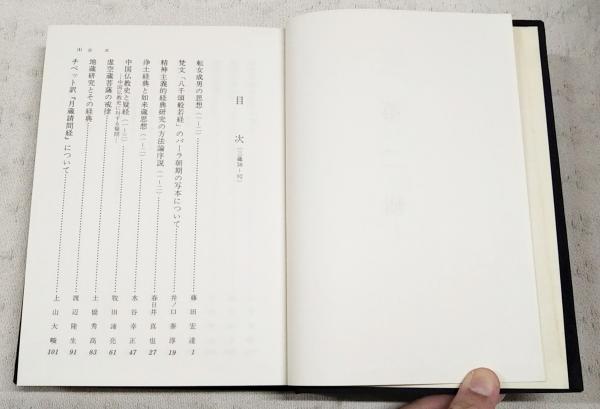 目次（三蔵38〜92）
転女成男の思想（一〜二）……藤田宏達 1
梵文「八千頌般若経」のパーラ朝期の写本について……井ノ口泰淳 19
精神主義的経典研究の方法論序説（一〜二）……春日井真也 27
浄土経典と如来蔵思想（一〜二）……水谷幸正 47
中国仏教史と疑経（一〜三）……牧田諦亮 61
―中国仏教史に対する疑問―
虚空蔵菩薩の戒律……土橋秀高 83
地蔵研究とその経典……渡辺隆生 91
チベット訳『月蔵請問経』について……上山大峻 101